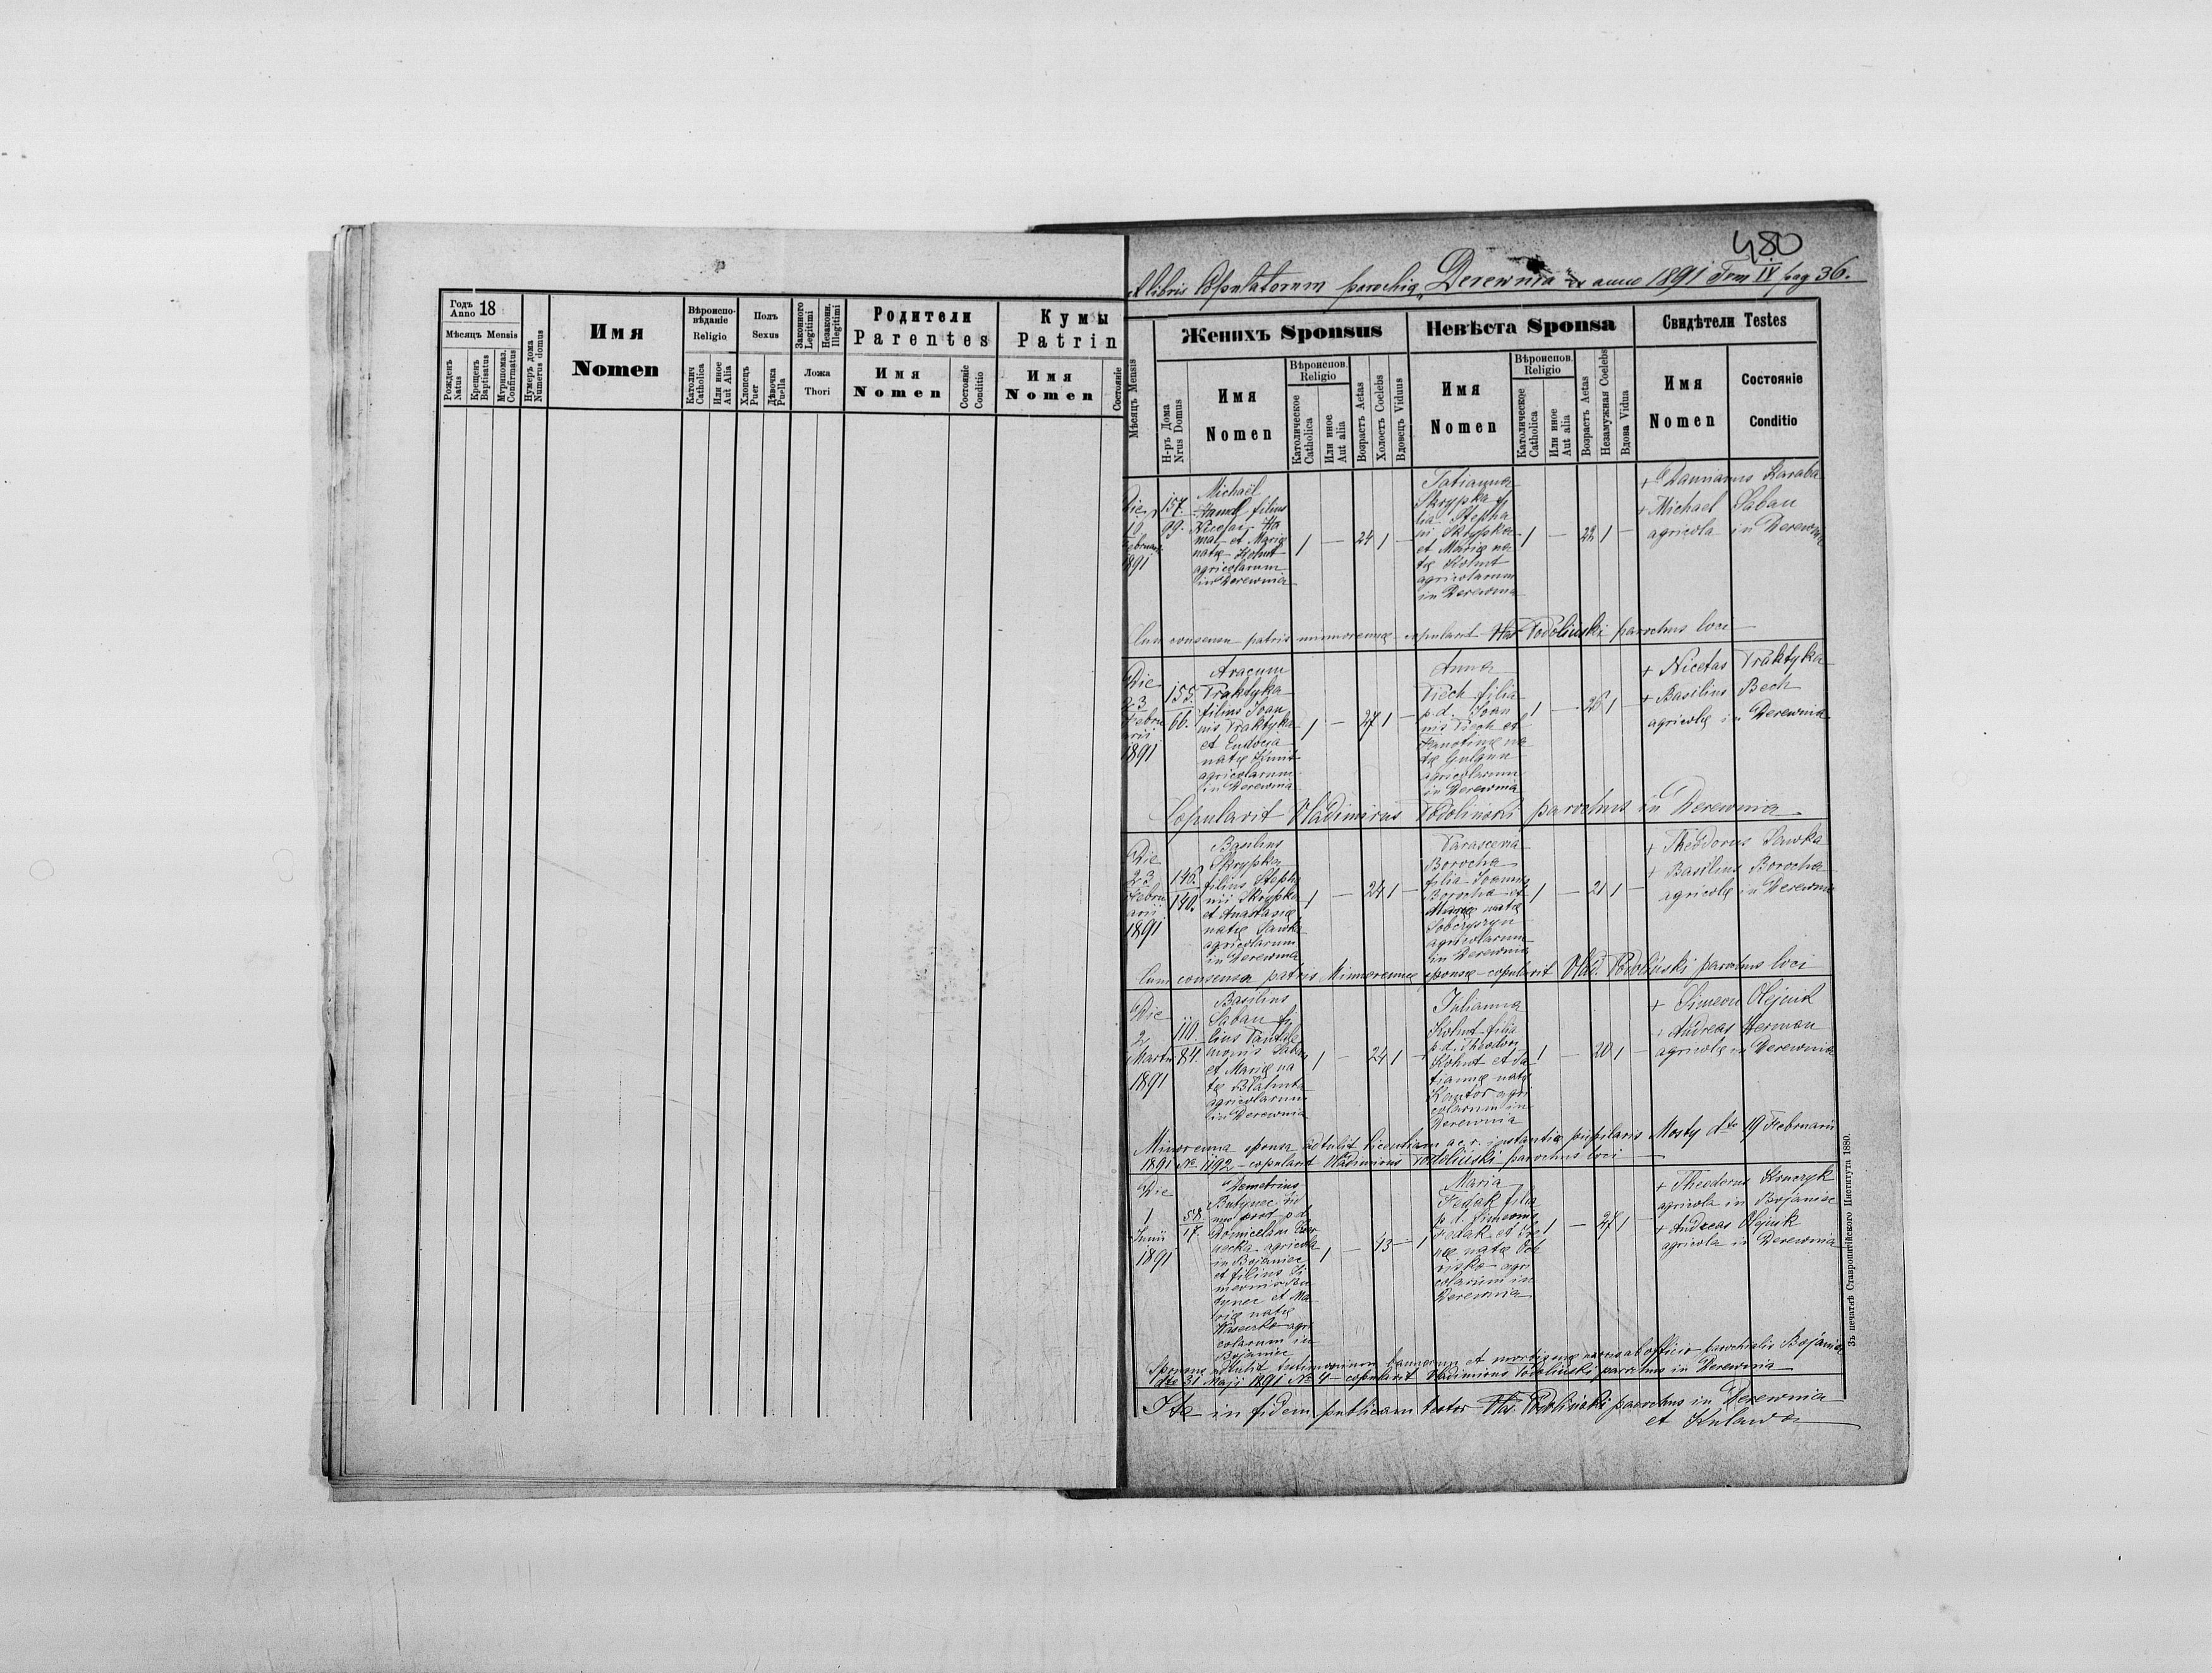 Годъ Anno 18
Мѣсяцъ Mensis
Рожденъ Natus
Крещенъ Baptisatus
Мѵропомаз. Confirmatus
Нумеръ дома Numerus domus
Имя
Nomen
Вѣроиспо-
вѣданіе
Religio
Католич Catholica
Или иное Aut Alia
Полъ
Sexus
Хлопецъ Puer
Дѣвочка Puella
Законного Legitimi
Незаконн. Illegitimi
Ложа
Thori
Родители
Parentes
Имя
Nomen
Состояніе Conditio
Кумы
Patrin
Имя
Nomen
Состояніе
480
libris Copulatorum parochiæ Derewnia anno 1891 Tom IV pag 36.
Мѣсяцъ Mensis
Женихъ Sponsus
Н-ръ Дома Nrus Domus
Имя
Nomen
Вѣроиспов.
Religio
Католическое Catholica
Или иное Aut alia
Возрастъ Aetas
Холостъ Coelebs
Вдовецъ Viduus
Невѣста Sponsa
Имя
Nomen
Вѣроиспов.
Religio
Католическое Catholica
Или иное Aut alia
Возрастъ Aetas
Незамужная Coelebs
Вдова Vidua
Свидѣтели Testes
Имя
Nomen
Состояніе
Conditio
1891
157.
99.
Michaël
filius
et Mariæ
natæ Kohut
agricolarum
in Derewnia
1 — 24 1 —
Tatianna
Skrypka fi
lia Stepha
ni Skrypka
et Mariæ na
tæ Kohut
agricolarum
in Derewnia
1 — 22 1 —
+ Damianus Karaba
+ Michael Saban
agricola in Derewnia
Cum consensu patris minorennæ copulavit Vlad Podolinski parochus loci
Die
23
Febru
arii
1891
155.
60.
Praktyka
filius Joan
nis Praktyka
et Eudocia
natæ
agricolarum
in Derewnia
1 — 27 1 —
Anna
Piech filia
p.d. Joan
nis Piech et
na
tæ
agricolarum
in Derewnia
1 — 26 1 —
+ Nicetas Praktyka
+ Basilius Bech
agricolæ in Derewnia
Copulavit Vladimirus Podolinski parochus in Derewnia
Die
23
Febru
arii
1891
146.
140.
Basilius
Skrypka
filius Stepha
nii Skrypka
et Anastasiæ
natæ Sawka
agricolarum
in Derewnia
1 — 24 1 —
Parascevia
Borocha
filia Joannis
Borocha et
Mariæ natæ
Sobczyszyn
agricolarum
in Derewnia
1 — 21 1 —
+ Theodorus Sawka
+ Basilius Borocha
agricolæ in Derewnia
Cum consensu patris Minorennæ sponsæ copulavit Vlad. Podolinski parochus loci
Die
2
Martii
1891
110.
84.
Basilius
Saban fi
lius Pantele
monis Saban
et Mariæ na
tæ
agricolarum
in Derewnia
1 — 24 1 —
Julianna
Kohut filia
p.d. Theodori
Kohut et Ta
tiannæ natæ
Kantor agri
colarum in
Derewnia
1 — 20 1 —
+ Simeon Olejnik
+ Andreas Herman
agricolæ in Derewnia
Minorenna sponsa adtulit licentiam a c. r. instantiæ pupilaris Mosty dto 19 Februarii
1891 No 1192 — copulavit Vladimirus Podolinski parochus loci —
Die
1
Junii
1891
58.
17.
Demetrius
Butynec vid
uus post p d
agricola
in Bojaniec
et filius Si
meonis Bu
tynec et Ma
riæ natæ
agri
colarum in
Bojaniec
1 — 43 — 1
Maria
Fedak filia
p.d. Simeonis
Fedak et Ire
næ natæ
agri
colarum in
Derewnia
1 — 27 1 —
+ Theodorus
agricola in Bojaniec
+ Andreas Olejnik
agricola in Derewnia
Sponsus adtulit testimonium bannorum et ab officio parochialis Bojaniec
dto 31 Maji 1891 No 4 — copulavit Vladimirus Podolinski parochus in Derewnia
Ita in fidem publicam testor Vlad. Podolinski parochus in Derewnia
et Kulawa
Зъ печатнѣ Ставропигійского Института 1880.